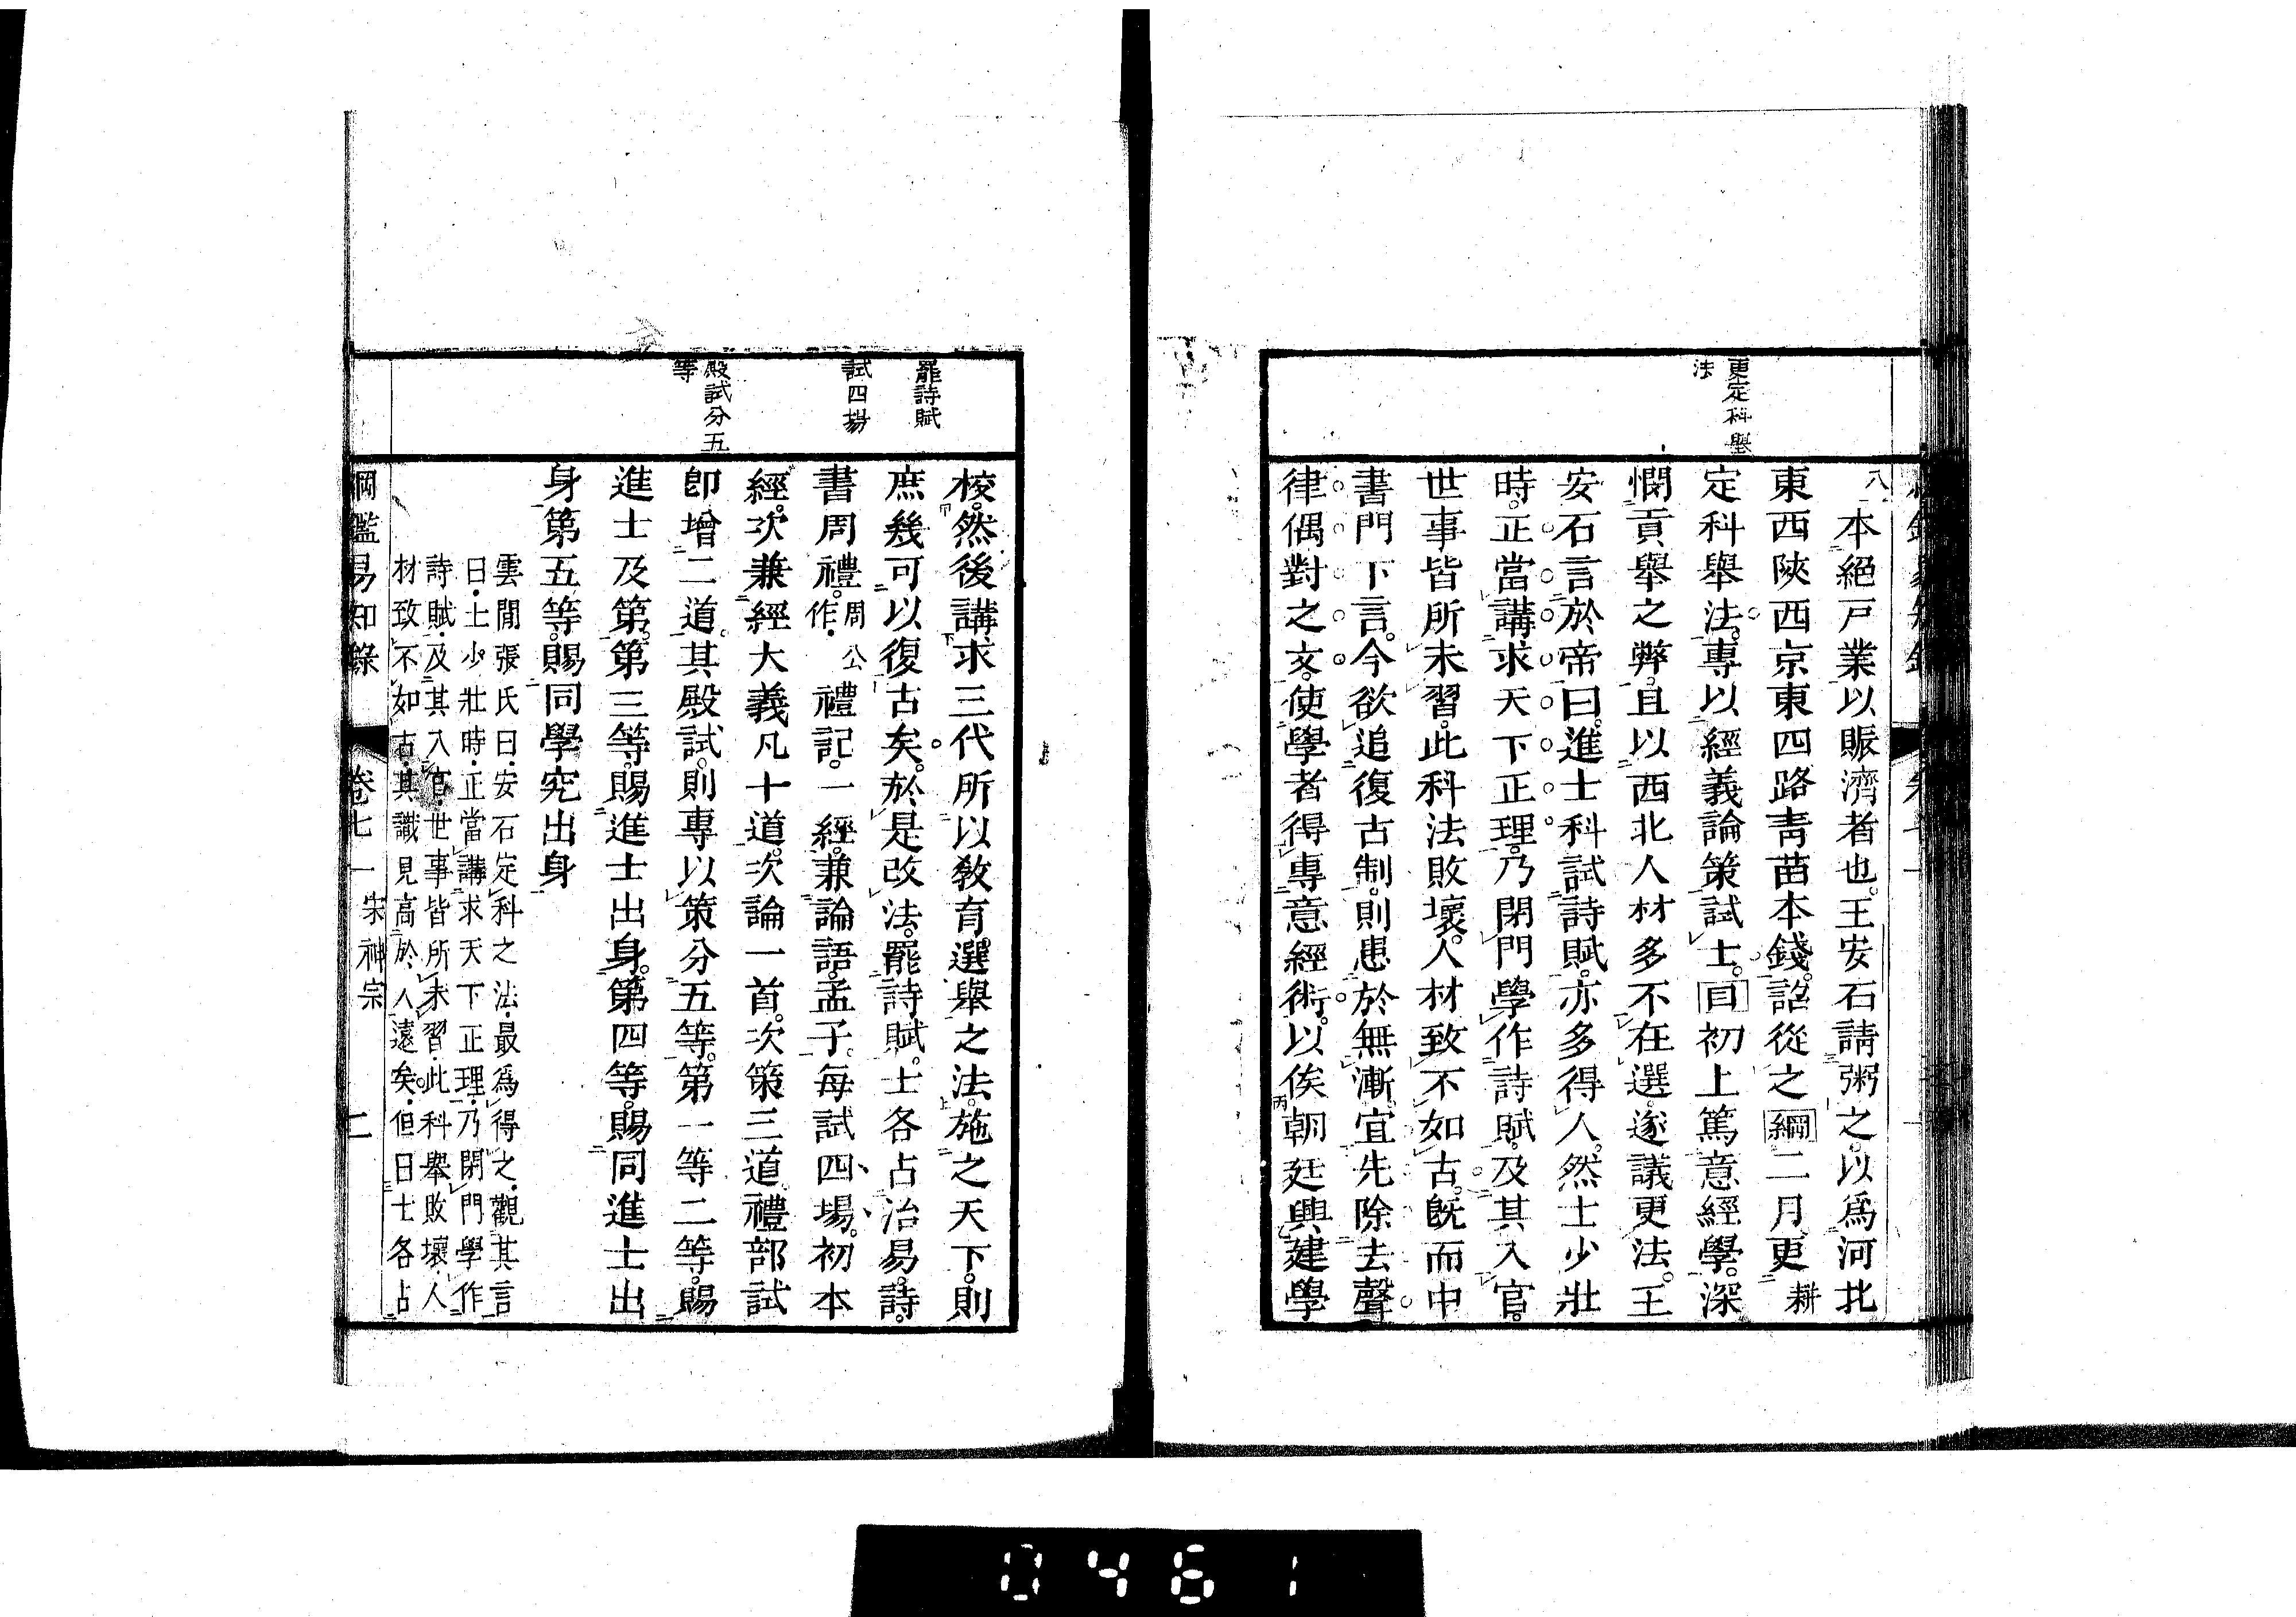 更定科舉
法
本絕戸業以賑濟者也。王安石請粥之。以爲河北
東西陝西京東四路靑苗本錢。詔從之綱二月更耕
定科舉法。專以經義論策試士。目初上篤意經學。深
憫貢舉之弊。且以西北人材多不在選。遂議更法。王
安石言於帝曰。進士科試詩賦。亦多得人。然士少壯
時。正當講求天下正理。乃閉門學作詩賦。及其入官。
世事皆所未習。此科法敗壞。人材致不如古。旣而中
書門下言。今欲追復古制。則患於無漸。宜先除去聲
律偶對之文。使學者得專意經術。以俟朝廷興建學
罷詩賦
試四場
殿試分五
等
校。然後講求三代所以敎育。選舉之法。施之天下。則
庶幾可以復古矣。於是改法。罷詩賦。士各占治易。詩。
書周禮。周公作。禮記。一經。兼論語。孟子。每試四場。初本
經。次兼經大義凡十道。次論一首。次策三道禮部試
卽增二道。其殿試。則專以策分五等。第一等二等。賜
進士及第。第三等。賜進士出身。第四等。賜同進士出
身第五等。賜同學究出身
雲間張氏曰。安石定科之法。最爲得之。觀其言
曰。士少壯時。正當講求天下正理。乃閉門學作
詩賦。及其入官。世事皆所未習。此科舉敗壞。人
材致不如古。其識見高於人遠矣。但曰士各占
綱鑑易知錄 卷七一 宋神宗 二
0461